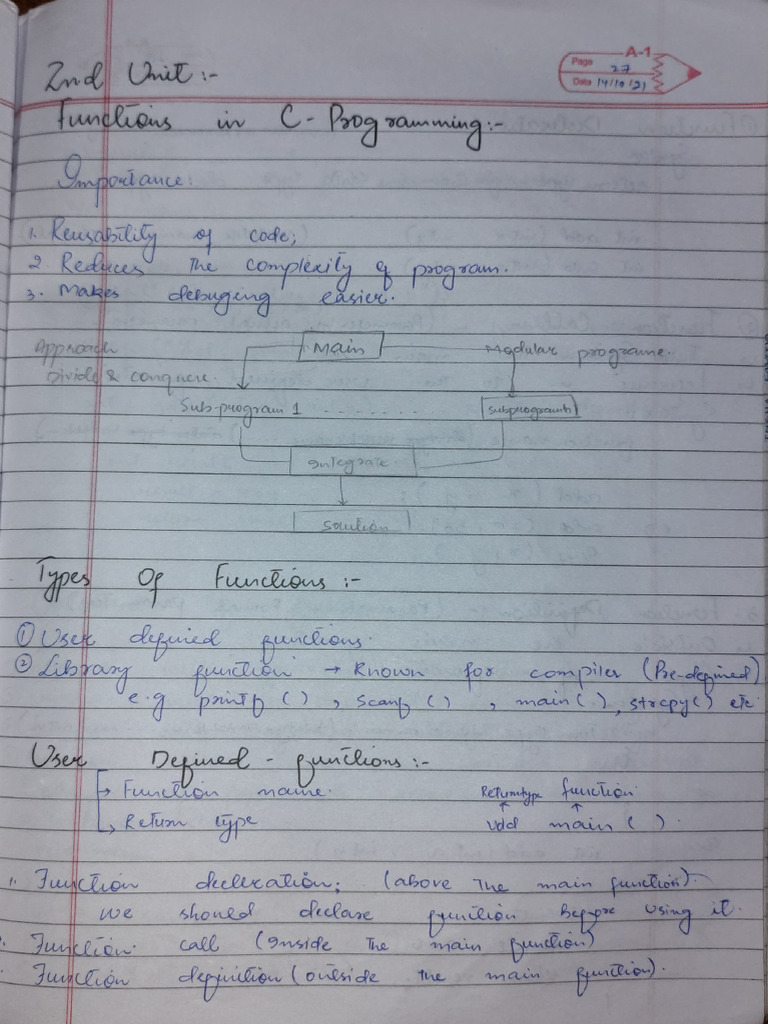 A-1
Page 27
Date 14/10/21
2nd Unit :-
Functions in C-Programming:-
Importance:
1. Reusability of code;
2 Reduces the complexity of program.
3. Makes debuging easier.
Approach Main Modular programe.
Divide & conquere.
Sub-program 1 ........ subprogram
Integrate
Solution
Types Of Functions :-
① User defined functions.
② Library function → Known for compiler (Pre-defined)
e.g printf ( ) , scanf ( ) , main( ), strcpy() etc
User Defined - functions :-
→ Function name. Returntype function
→ Return type void main ( ).
1. Function decleration; (above the main function).
we should declare funition before using it.
2. Function call (inside the main function)
Function definition (outside the main function).